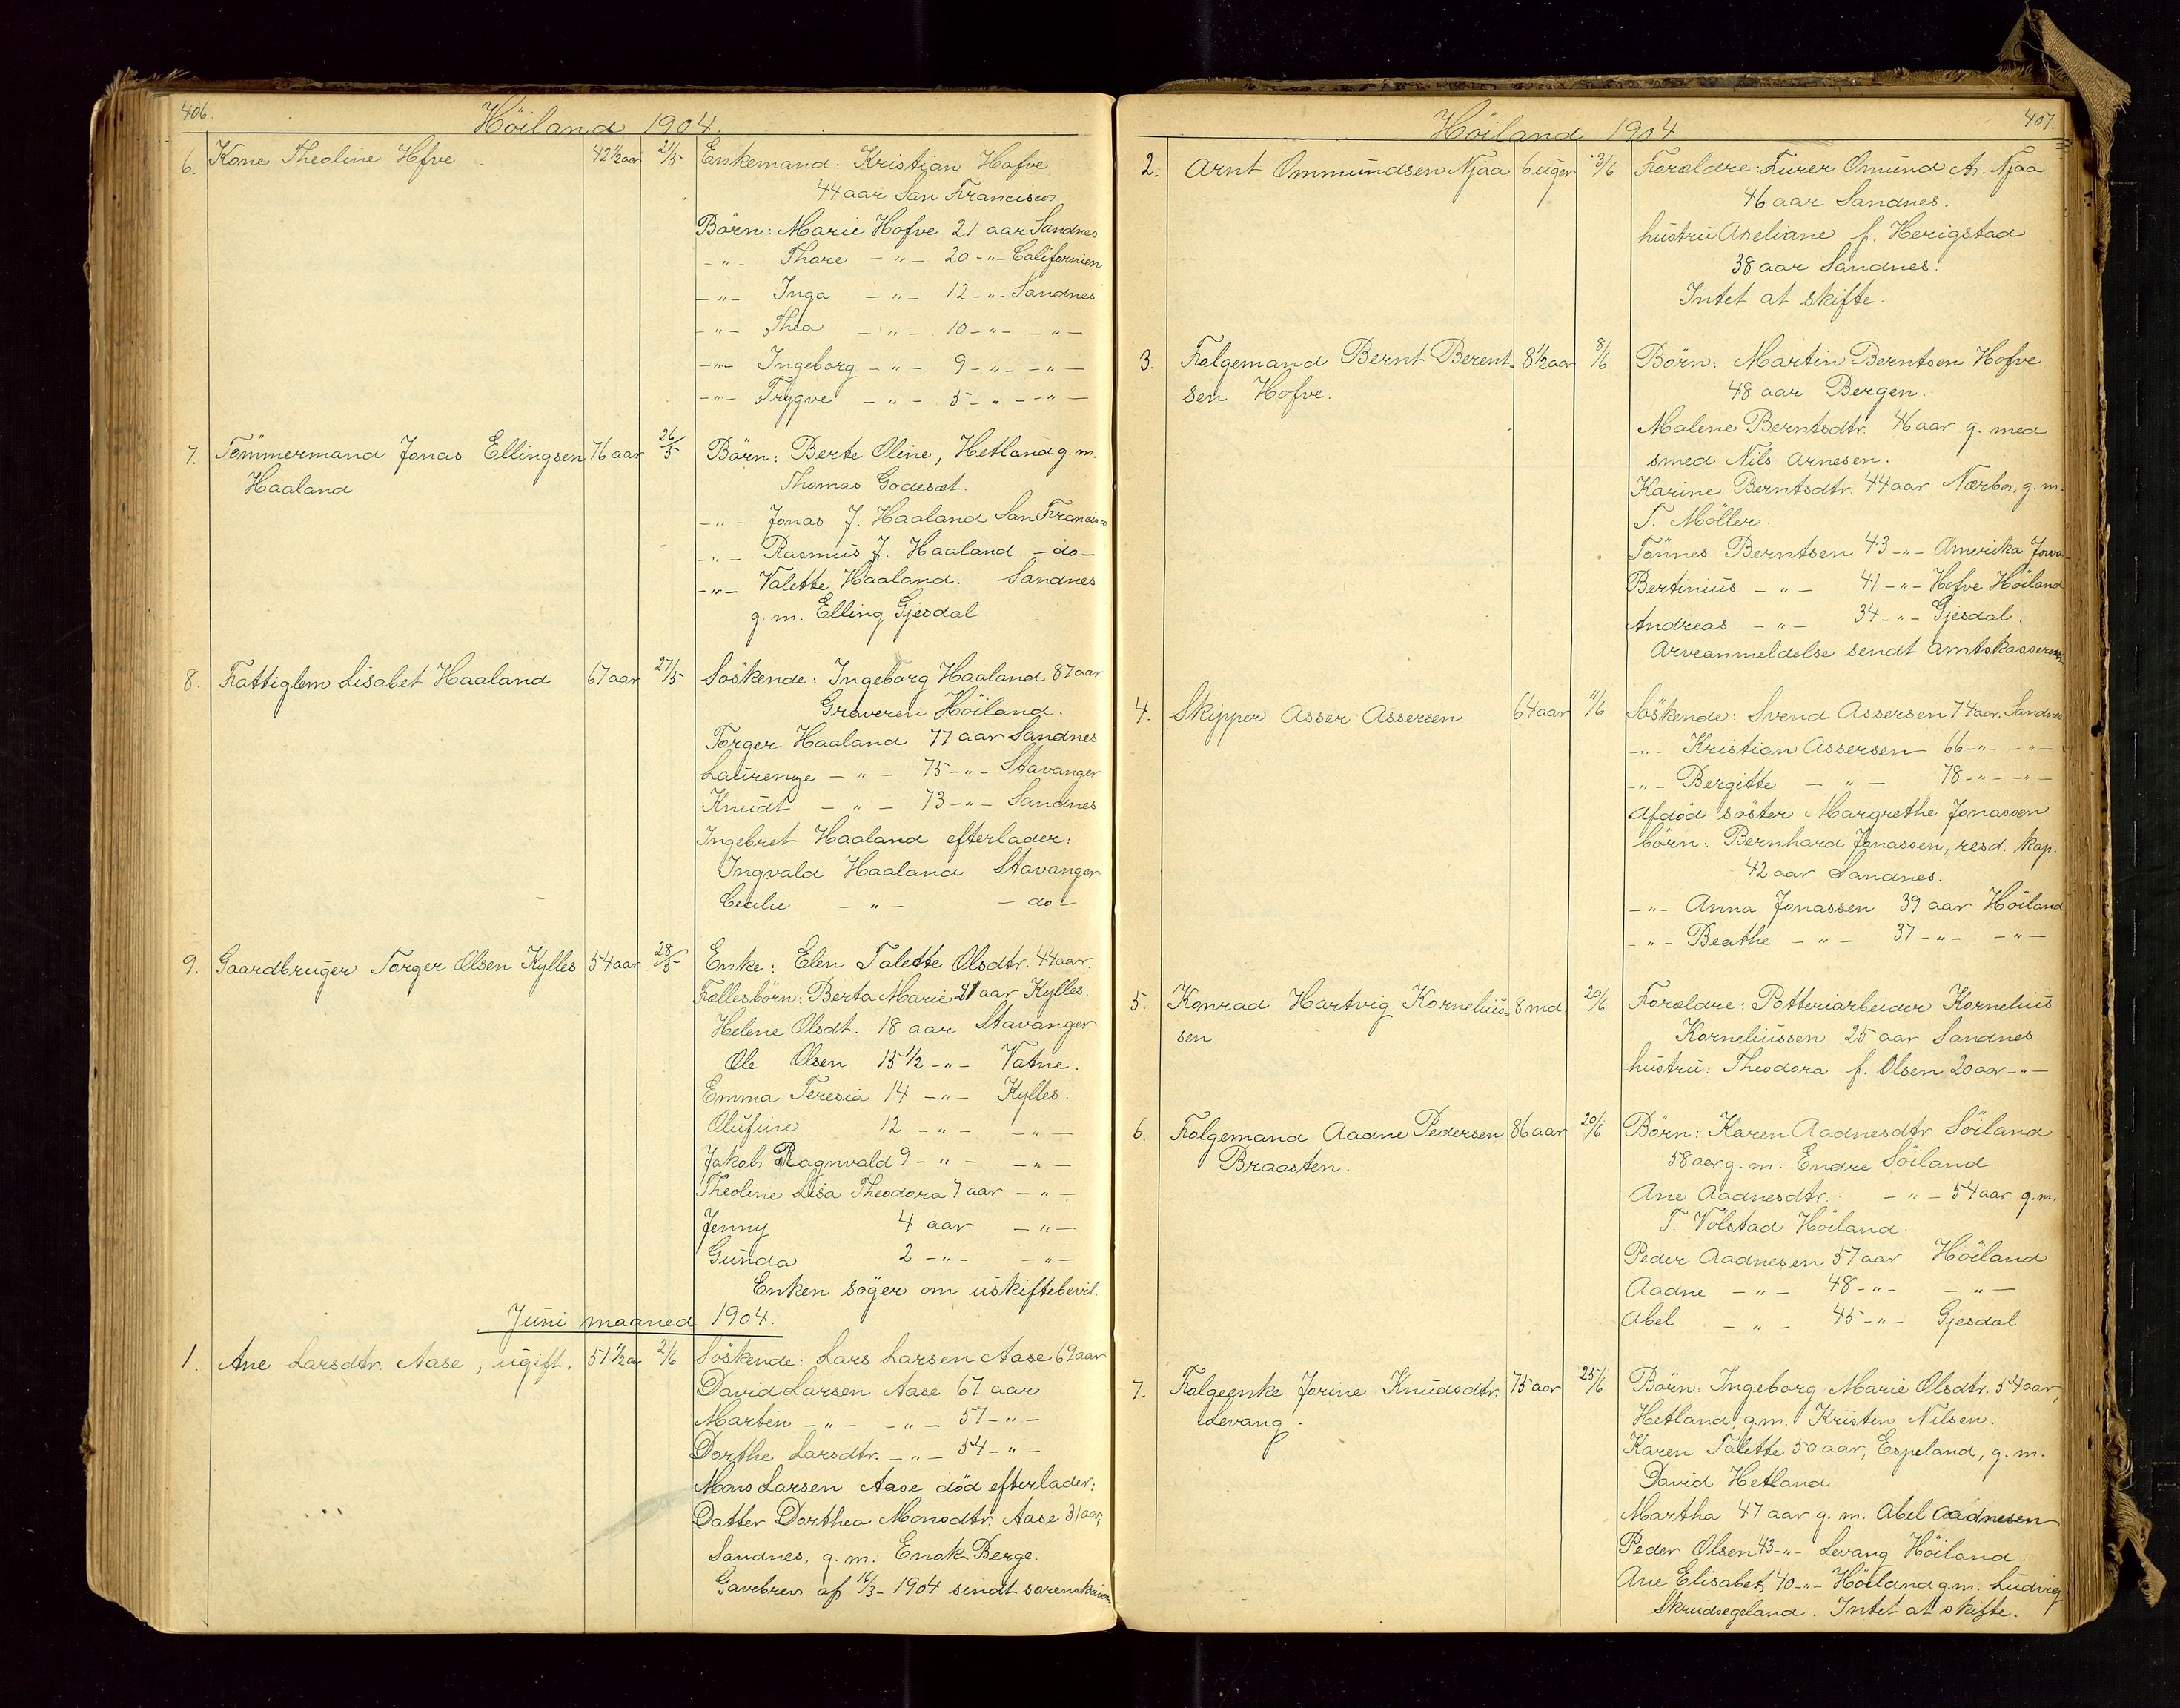 406.
Höiland 1904.
6. Kone Theoline Hfve 42½ aar 21/5 Enkemand: Kristian Hofve
44 aar San Francisco
Börn: Marie Hofve 21 aar Sandnes
-"- Thore -"- 20 -"- Californien
-"- Inga -"- 12 -"- Sandnes
-"- Thea -"- 10 -"- -"-
-"- Ingeborg -"- 9 -"- -"-
-"- Trygve -"- 5 -"- -"-
7. Tömmermand Jonas Ellingsen 76 aar 26/5 Börn: Berte Oline, Hetland g.m.
Haaland Thomas Godeset.
-"- Jonas J. Haaland San Francisco
-"- Rasmus J. Haaland -do-
-"- Valette Haaland. Sandnes
g.m. Elling Gjesdal
8. Fattiglem Lisabet Haaland 67 aar 27/5 Söskende: Ingeborg Haaland 87 aar
Graveren Höiland.
Torger Haaland 77 aar Sandnes
-"- 75 -"- Stavanger
Knudt -"- 73 -"- Sandnes
Ingebret Haaland efterlader:
Ingvald Haaland Stavanger
Cecilie -"- -do-
9. Gaardbruger Torger Olsen Kylles 54 aar 28/5 Enke: Elen Talette Olsdtr. 44 aar.
Fællesbörn: Berta Marie 21 aar Kylles.
Helene Olsdt. 18 aar Stavanger
Ole Olsen 15½ -"- Vatne.
Emma Teresia 14 -"- Kylles.
Olufine 12 -"- -"-
Jakob Ragnvald 9 -"- -"-
Theoline Lisa Theodora 7 aar -"-
Jenny 4 aar -"-
Gunda 2 -"- -"-
Enken söger om uskiftebevil.
Juni maaned 1904.
1. Ane Larsdtr. Aase, ugift. 51½ aar 2/6 Söskende: Lars Larsen Aase 69 aar
David Larsen Aase 67 aar
Martin -"- -"- 57 -"-
Dorthe Larsdtr. -"- 54 -"-
Mons Larsen Aase död efterlader:
Datter Dorthea Monsdtr. Aase 31 aar,
Sandnes, g.m. Enok Berge.
Gavebrev af 16/3-1904 sendt
407.
Höiland 1904
2. Arnt Ommundsen Njaa 6 uger 3/6 Forældre: Furer Omund A. Njaa
46 aar Sandnes.
hustru Aneliane f. Herigstad
38 aar Sandnes.
Intet at skifte.
3. Folgemand Bernt Berent- 81½ aar 8/6 Börn: Martin Berntsen Hofve
sen Hofve. 48 aar Bergen.
Malene Berntsdtr. 46 aar g. med
smed Nils Arnesen.
Karine Berntsdtr. 44 aar Nærbo, g.m.
T. Möller.
Tönnes Berntsen 43 -"- Amerika Jowa
Bertinius -"- 41 -"- Hofve Höiland
Andreas -"- 34 -"- Gjesdal.
Arveanmeldelse sendt amtskasseren
4. Skipper Asser Assersen 64 aar 11/6 Söskende: Svend Assersen 74 aar. Sandnes
-"- Kristian Assersen 66 -"- -"-
-"- Bergitte -"- 78 -"- -"-
Afdöd söster Margrethe Jonassen
börn: Bernhard Jonassen, resd. kap.
42 aar Sandnes.
-"- Anna Jonassen 39 aar Höiland
-"- Beathe -"- 37 -"- -"-
5. Konrad Hartvig Kornelius- 8 md. 20/6 Forældre: Potteriarbeider Kornelius
sen Korneliussen 25 aar Sandnes
hustru: Theodora f. Olsen 20 aar -"-
6. Folgemand Aadne Pedersen 86 aar 20/6 Börn: Karen Aadnesdtr. Söiland
Braasten. 58 aar. g.m. Endre Söiland.
Ane Aadnesdtr. -"- 54 aar g.m.
T. Volstad Höiland.
Peder Aadnesen 57 aar Höiland
Aadne -"- 48 -"- -"-
Abel -"- 45 -"- Gjesdal
7. Folgeenke Jorine Knudsdtr. 75 aar 25/6 Börn: Ingeborg Marie Olsdtr. 54 aar,
Levang. Hetland, g.m. Kristen Nilsen.
Karen Talette 50 aar, Espeland, g.m.
David Hetland
Martha 47 aar g.m. Abel Aadnesen
Peder Olsen 43 -"- Levang Höiland.
Ane Elisabet 40 -"- Höiland g.m. Ludvig
Skrudsegeland. Intet at skifte.